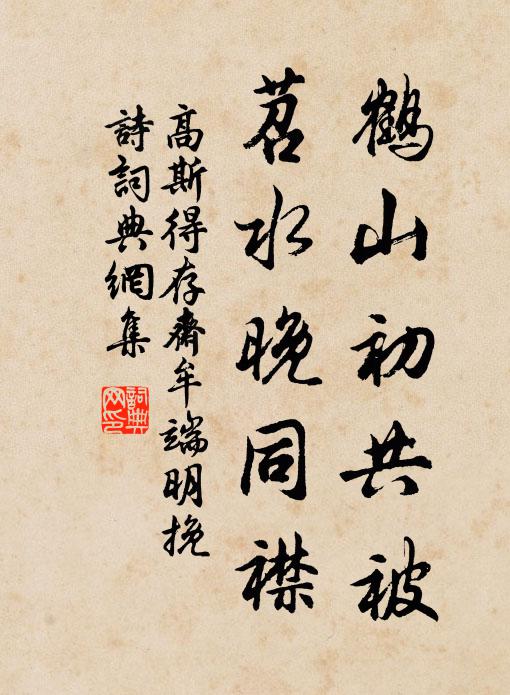 鶴山初共被
苕水晚同襟
高斯得存齋牟端明挽
詩詞典網集
詞典
网印